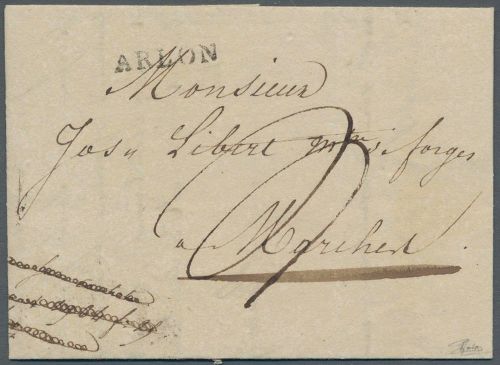 ARLON
Monsieur
Jos. Libert mtre de forges
a Marchest